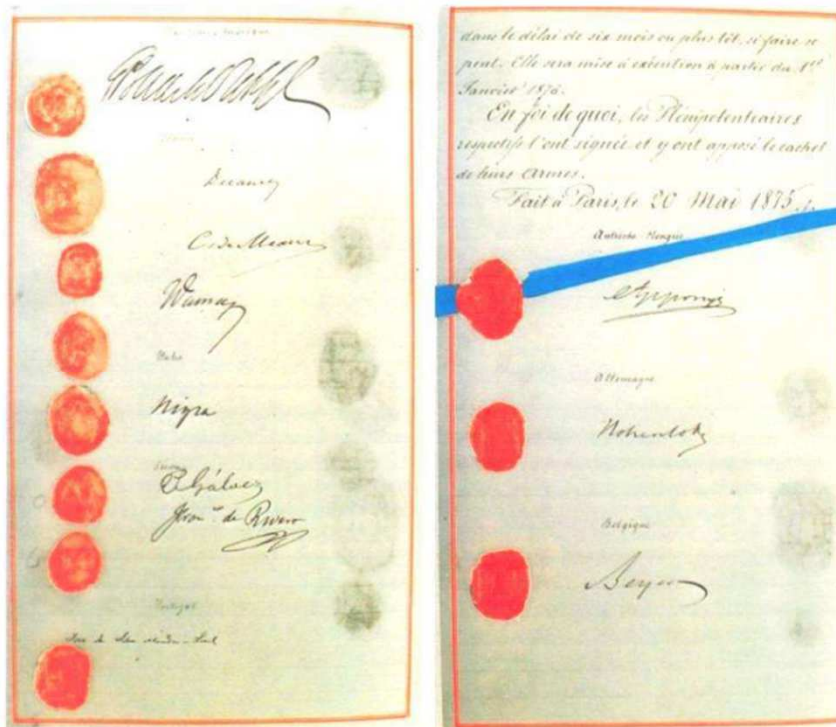 Decazes
C. de Meaux
Dumas
Italie
Nigra
P. Gálvez
Franco. de Rivero
Portugal
José da Silva Mendes Leal
dans le délai de six mois ou plus tôt, si faire se
peut. Elle sera mise à exécution à partir du 1er
Janvier 1876.
En foi de quoi, les Plénipotentiaires
respectifs l'ont signée et y ont apposé le cachet
de leurs armes.
Fait à Paris, le 20 Mai 1875.
Autriche-Hongrie
Apponyi
Allemagne
Hohenlohe
Belgique
Beyens